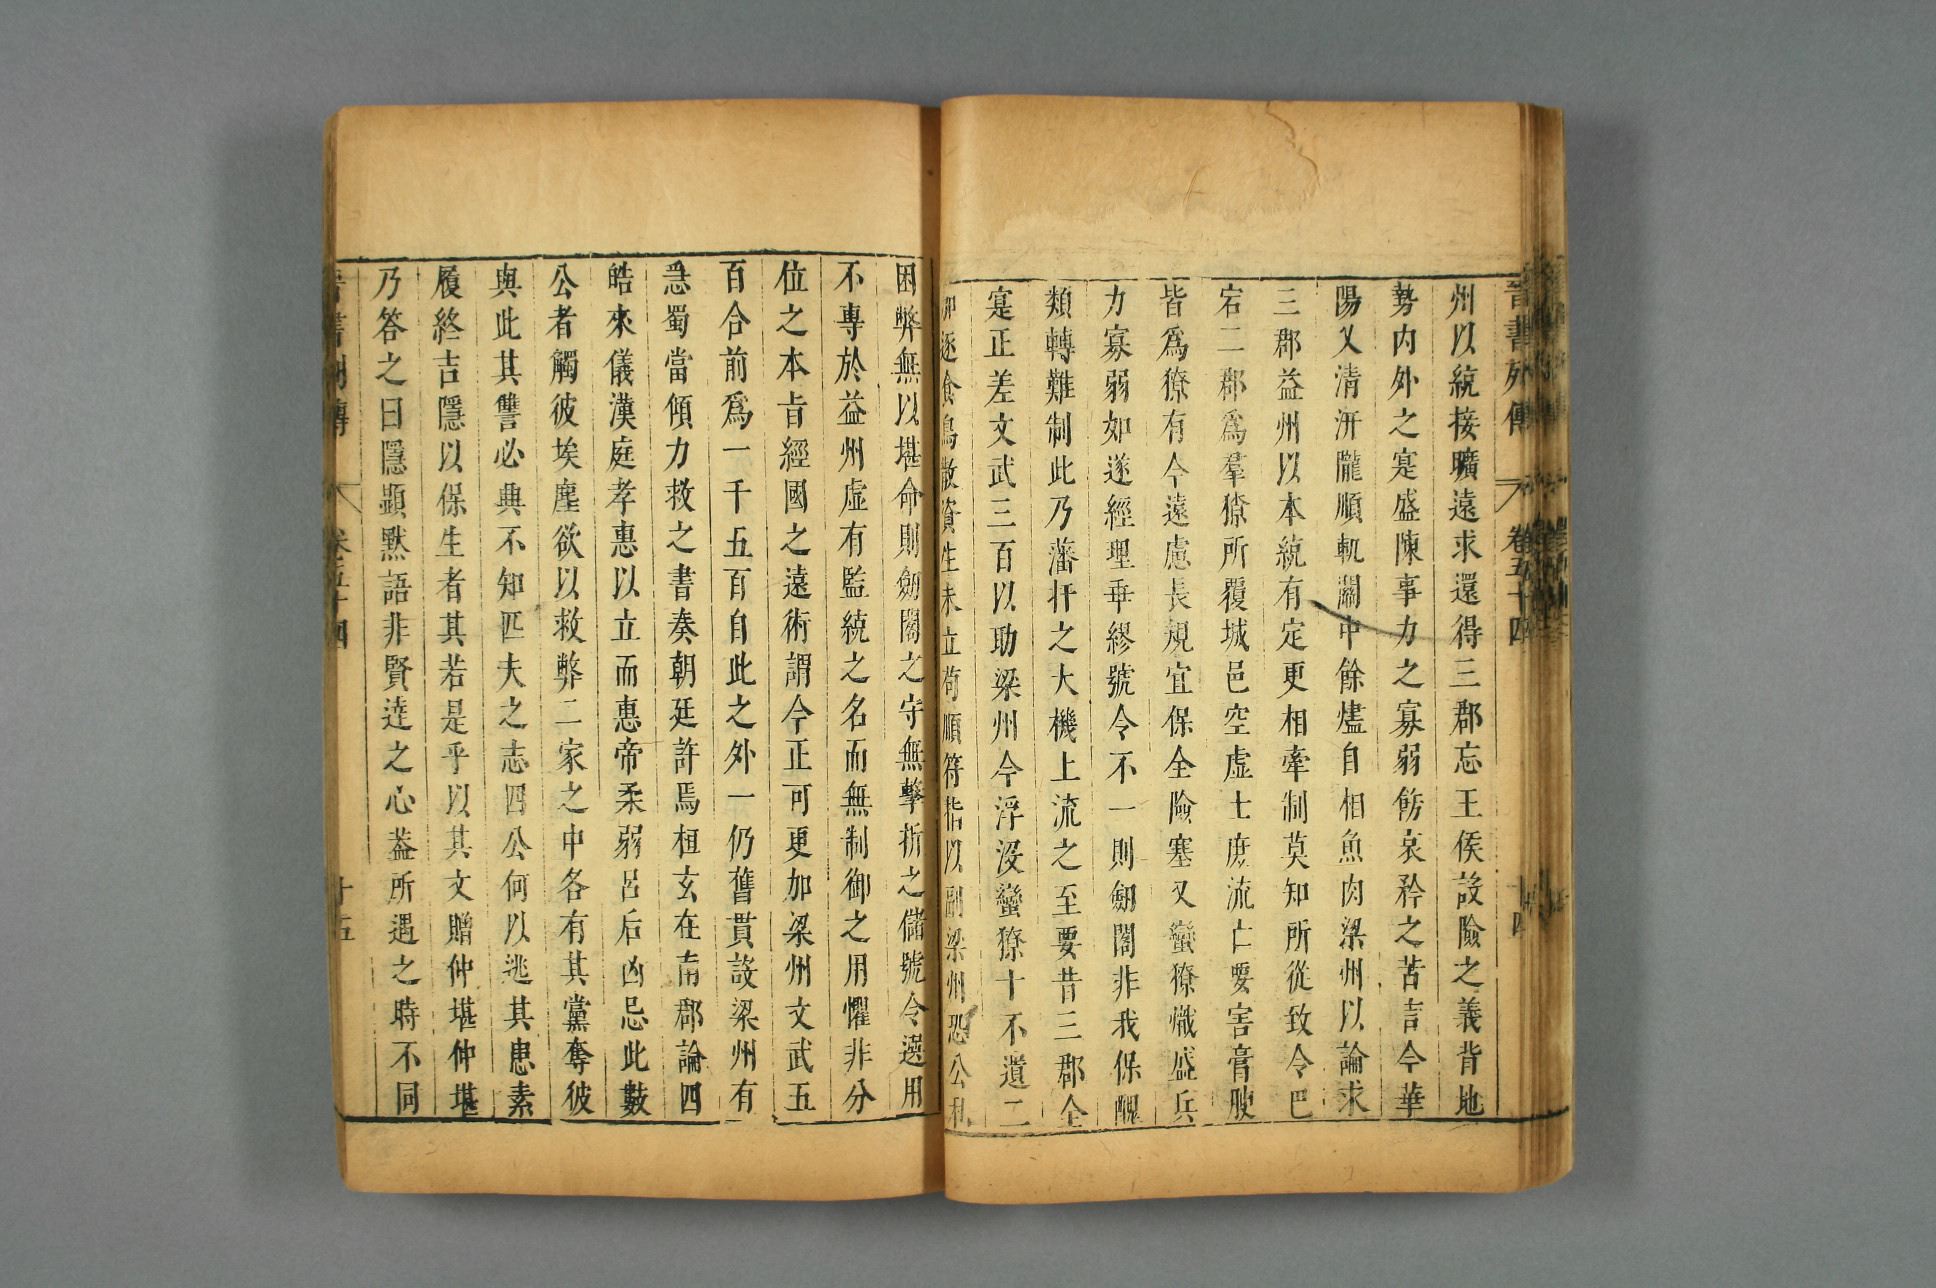 晉書列傳 卷五十四 十四
州以統接曠遠求還得三郡忘王侯設險之義背地
勢内外之寔盛陳事力之寡弱飾哀矜之苦言今華
陽又清汧隴順軌關中餘燼自相魚肉梁州以論求
三郡益州以本統有定更相牽制莫知所從致令巴
宕二郡爲羣獠所覆城邑空虛士庶流亡要害膏腴
皆爲獠有今遠慮長規宜保全險塞又蠻獠熾盛兵
力寡弱如遂經理乖繆號令不一則劒閣非我保醜
類轉難制此乃藩扞之大機上流之至要昔三郡全
寔正差文武三百以助梁州今浮沒蠻獠十不遺二
逐食鳥散資生未立苟順符指以副梁州恐公私
困弊無以堪命則劒閣之守無擊柝之儲號令選用
不專於益州虛有監統之名而無制御之用懼非分
位之本旨經國之遠術謂今正可更加梁州文武五
百合前爲一千五百自此之外一仍舊貫設梁州有
急蜀當傾力救之書奏朝廷許焉桓玄在南郡論四
皓來儀漢庭孝惠以立而惠帝柔弱呂后凶忌此數
公者觸彼埃塵欲以救弊二家之中各有其黨奪彼
與此其讐必興不知匹夫之志四公何以逃其患素
履終吉隱以保生者其若是乎以其文贈仲堪仲堪
乃答之曰隱顯默語非賢達之心蓋所遇之時不同
晉書列傳 卷五十四 十五